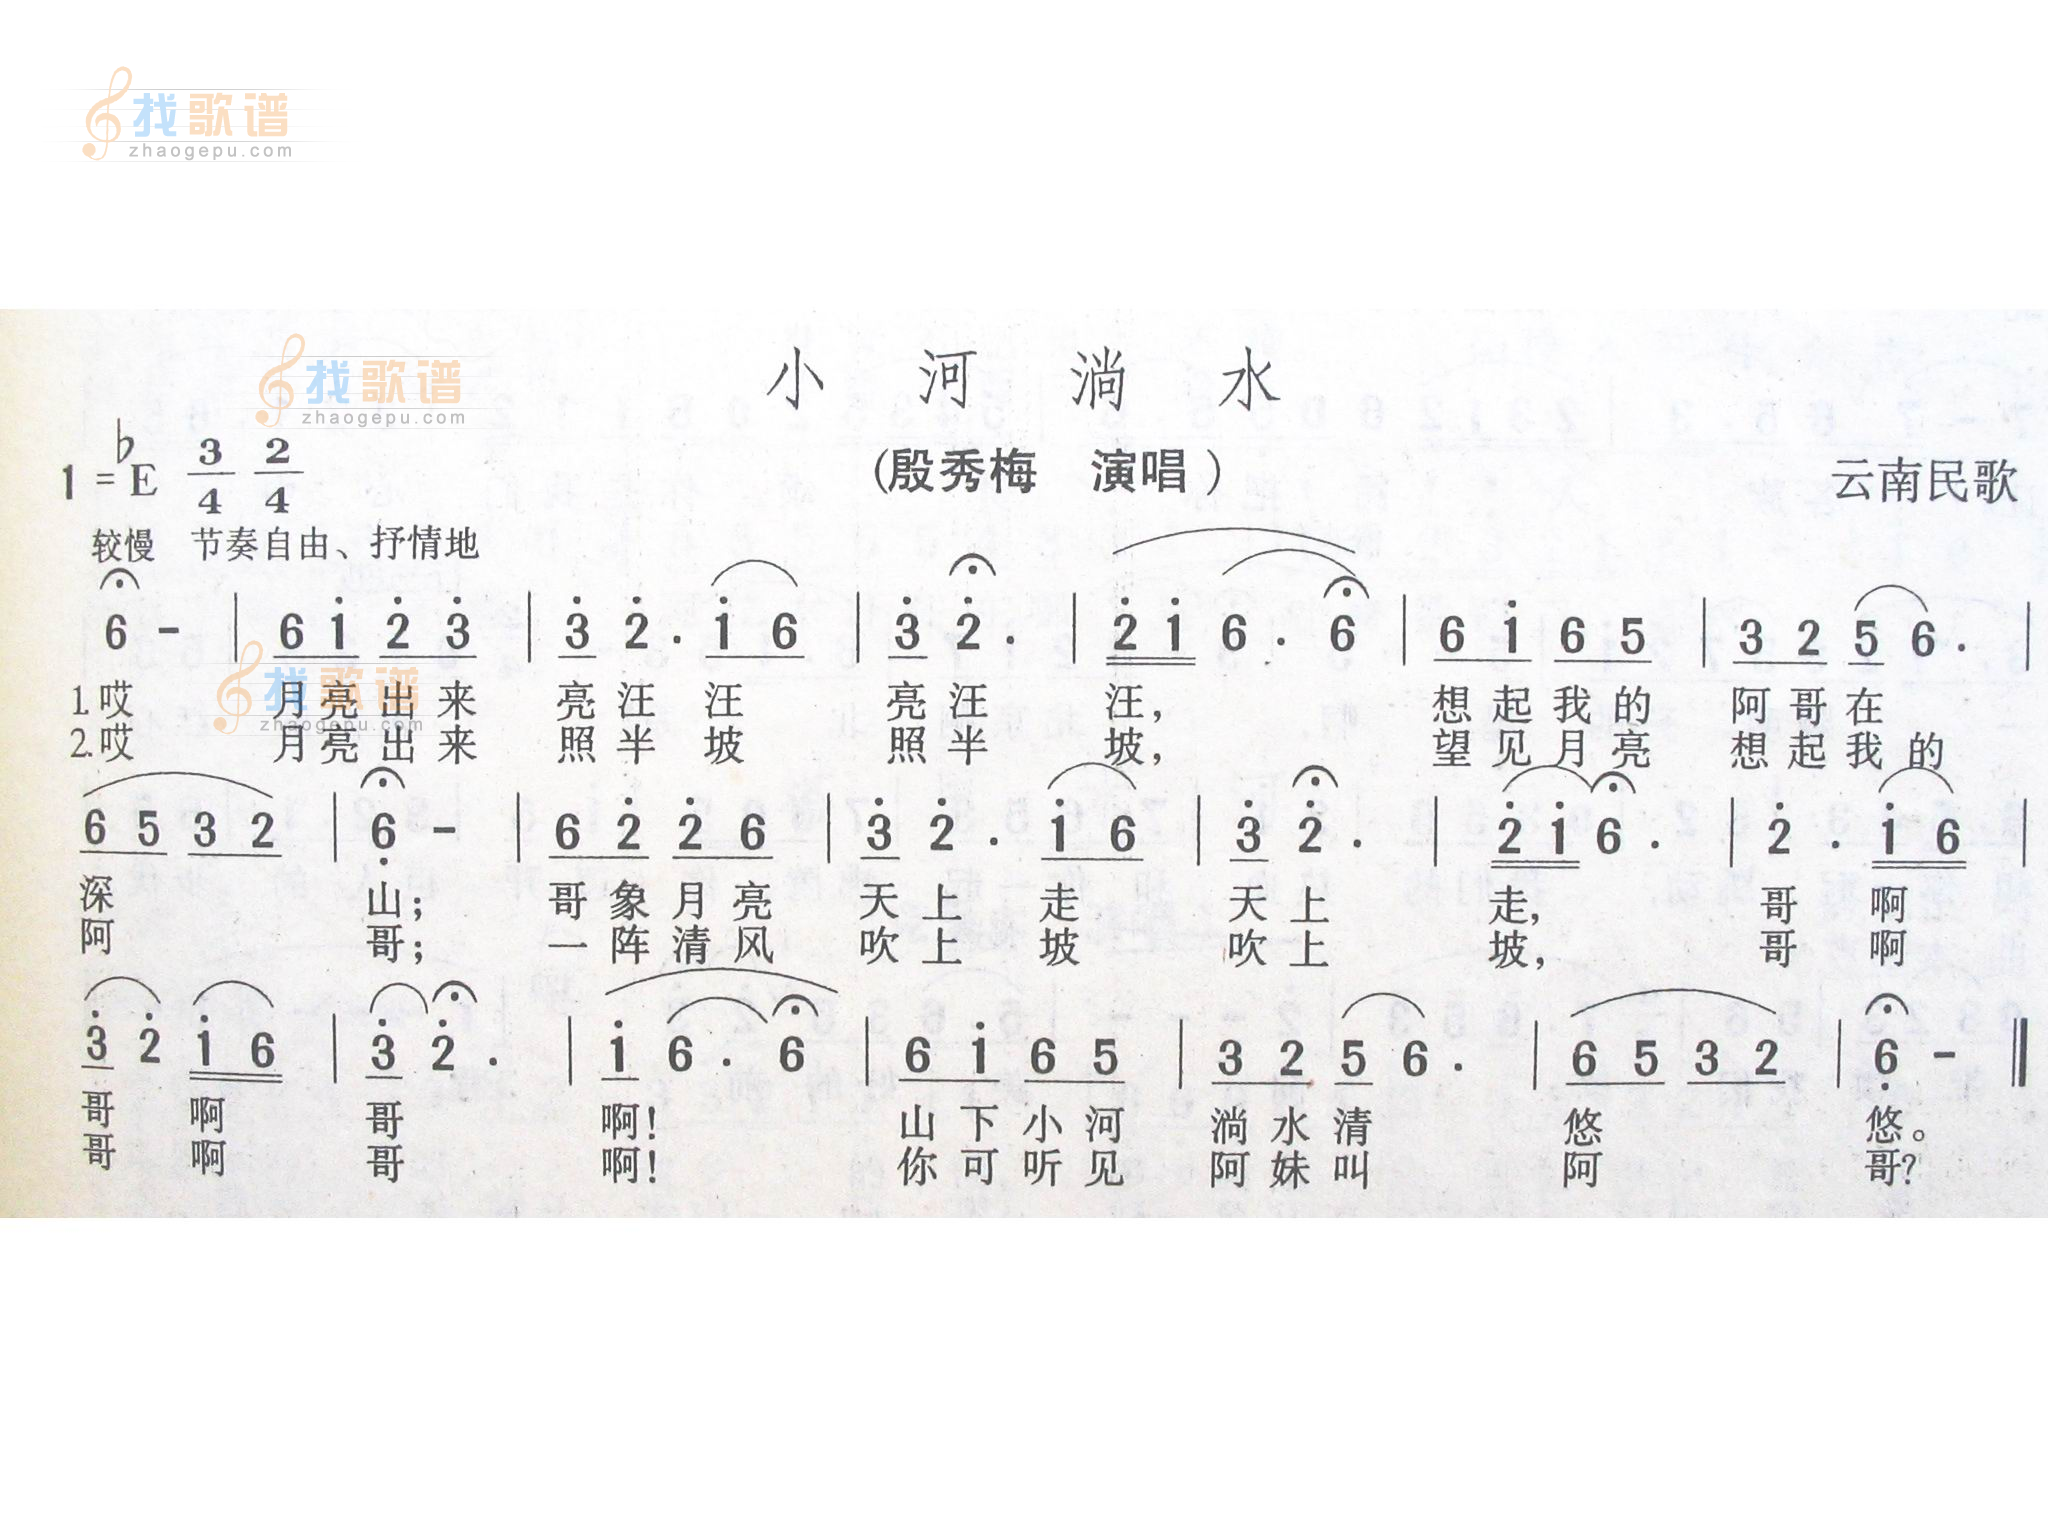 找歌谱
zhaogepu.com
找歌谱
zhaogepu.com
小河淌水
1=♭E 3/4 2/4
(殷秀梅 演唱)
云南民歌
较慢 节奏自由、抒情地
6 - | 6 1̇ 2̇ 3̇ | 3̇ 2̇ . 1̇ 6 | 3̇ 2̇ . | 2̇ 1̇ 6 . 6 | 6 1̇ 6 5 | 3 2 5 6 . |
找歌谱
zhaogepu.com
1.哎 月亮出来 亮汪汪 亮汪汪, 想起我的 阿哥在
2.哎 月亮出来 照半坡 照半坡, 望见月亮 想起我的
6 5 3 2 | 6̣ - | 6 2̇ 2̇ 6 | 3̇ 2̇ . 1̇ 6 | 3̇ 2̇ . | 2̇ 1̇ 6 . | 2̇ . 1̇ 6 |
深 山; 哥象月亮 天上走 天上走, 哥啊
阿 哥; 一阵清风 吹上坡 吹上坡, 哥啊
3̇ 2̇ 1̇ 6 | 3̇ 2̇ . | 1̇ 6 . 6 | 6 1̇ 6 5 | 3 2 5 6 . | 6 5 3 2 | 6̣ - ‖
哥啊 哥啊! 山下小河 淌水清 悠 悠。
哥啊 哥啊! 你可听见 阿妹叫 阿 哥?